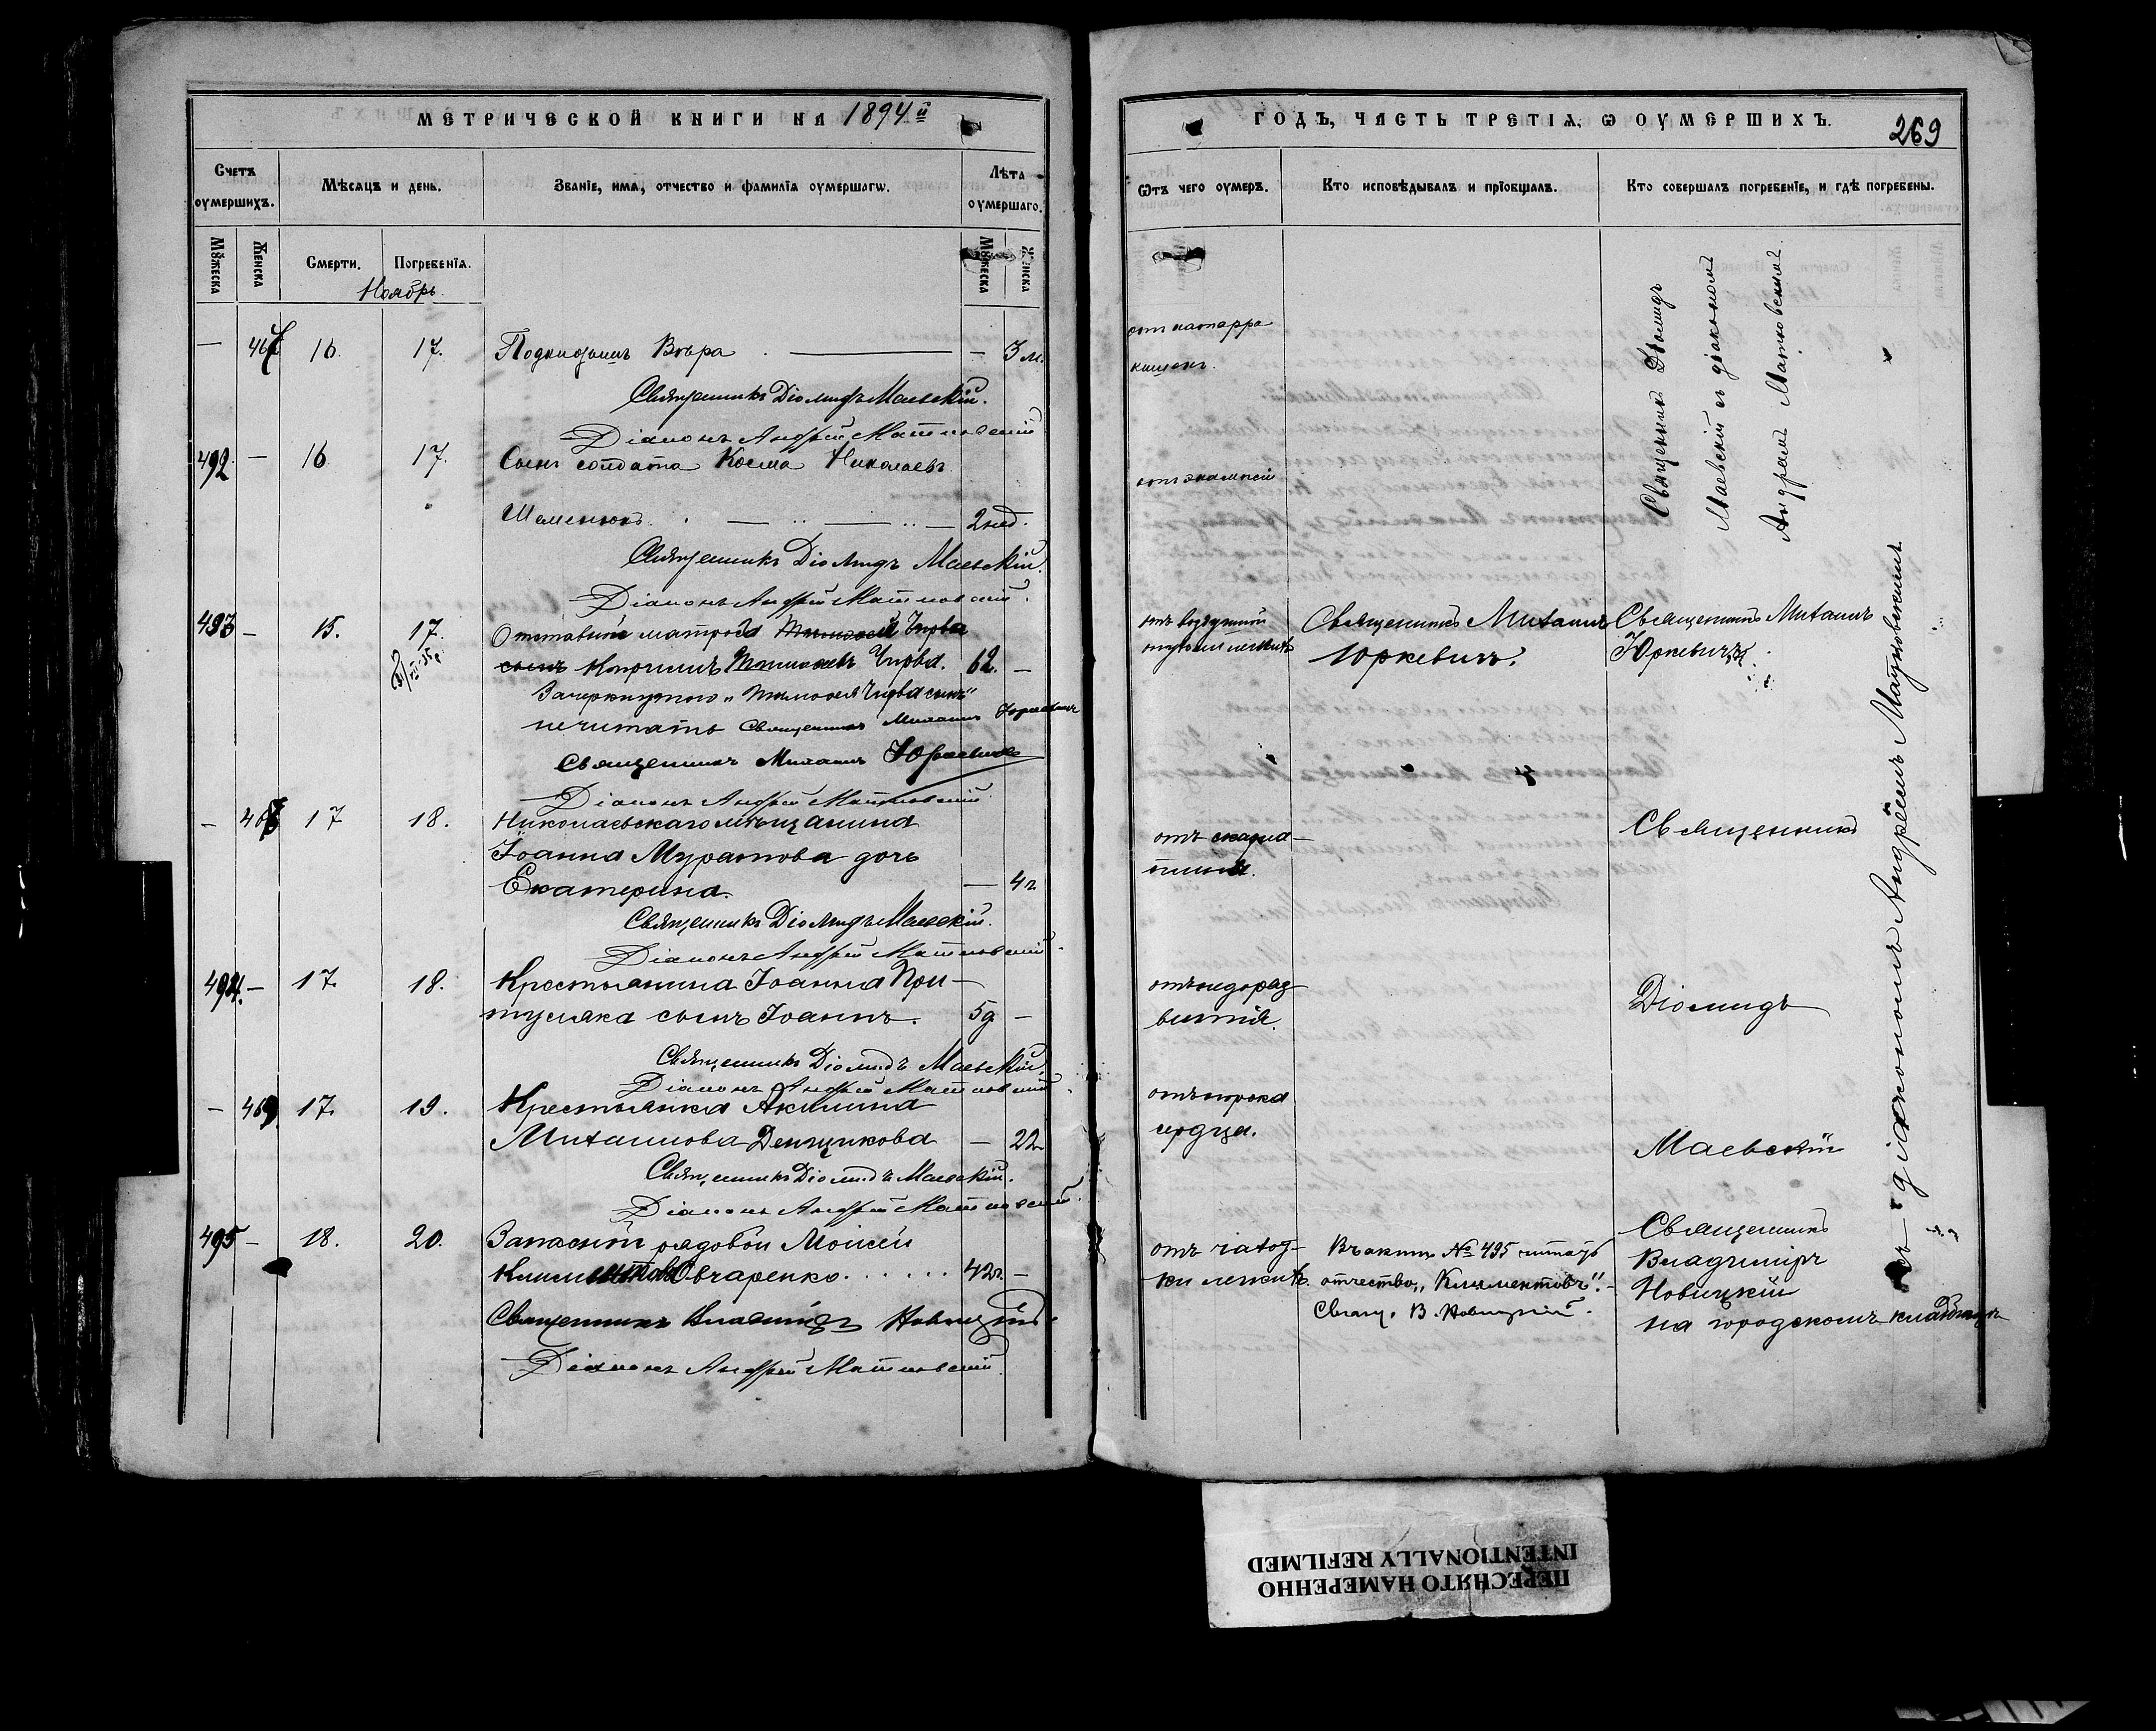 МЕТРИЧЕСКОЙ КНИГИ НА 1894й
Счетъ оумершихъ.
Мѣсяцъ и день.
Званїе, имя, отчество и фамилїа оумершагѡ.
Лѣта оумершаго.
Мꙋжеска
Женска
Смерти.
Погребенїя.
Мꙋжеска
Женска
Ноябрь.
— 467 16. 17. Подкидышъ Вѣра — — 3 м.
Священникъ Діомидъ Маевскій.
Діаконъ Андрей Матковскій
492 — 16 17. Сынъ солдата Косма Николаевъ
Шеменюкъ. — — — 2 нед.
Священникъ Діомидъ Маевскій.
Діаконъ Андрей Матковскій.
493 — 15. 17. Отставной матросъ Тимоѳей Чирва
сынъ Кириллъ Тимоѳеевъ Чирва. 62. —
Зачеркнутого „Тимоѳея Чирва сынъ"
нечитать Священникъ Михаилъ Юркевичъ
Священникъ Михаилъ Юркевичъ
Діаконъ Андрей Матковскій
— 468 17 18. Николаевскаго мѣщанина
Іоанна Муратова дочь
Екатерина. — 4 г
Священникъ Діомидъ Маевскій.
Діаконъ Андрей Матковскій.
494. — 17. 18. Крестьянина Іоанна При-
туляка сынъ Іоаннъ. 5 д —
Священникъ Діомидъ Маевскій.
Діаконъ Андрей Матковскій.
— 469. 17. 19. Крестьянка Акилина
Михаилова Денщикова — 22
Священникъ Діомидъ Маевскій.
Діаконъ Андрей Матковскій.
495 — 18. 20. Запасной рядовой Моисей
Климентовъ Овчаренко. . . . . . 42 г. —
Священникъ Владиміръ Новицкій.
Діаконъ Андрей Матковскій.
ГОДЪ, ЧАСТЬ ТРЕТІѦ, Ѡ ОУМЕРШИХЪ.
269
Ѿтъ чего оумеръ.
Кто исповѣдывалъ и прїобщалъ.
Кто совершалъ погребенїе, и гдѣ погребены.
отъ катарра
кишекъ.
Священникъ Діомидъ
Маевскій съ діакономъ
Андреемъ Матковскимъ.
отъ экламсіи
отъ воздушной
опухоли легкихъ
Священникъ Михаилъ
Юркевичъ.
Священникъ Михаилъ
Юркевичъ.
отъ скарла-
тины.
Священникъ
отъ недораз-
витія.
Діомидъ
отъ порока
сердца.
Маевскій
съ діакономъ Андреемъ Матковскимъ
отъ чахот-
ки легкихъ.
Въ актѣ № 495 читать
отчество „Климентовъ". —
Свящ. В. Новицкій.
Священникъ
Владиміръ
Новицкій
на городскомъ кладбищѣ
ПЕРЕСНЯТО НАМЕРЕННО
INTENTIONALLY REFILMED